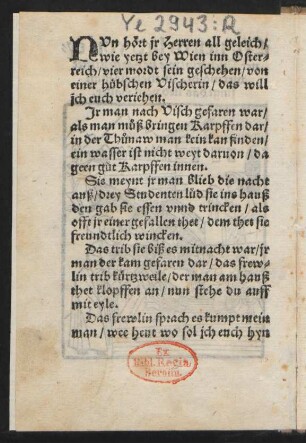 Ye 2943:R
NVn hört jr Herren all geleich/
wie yetzt bey Wien inn Oster-
reich/vier mordt sein geschehen/von
einer hübschen Vischerin/das will
jch euch veriehen.
Jr man nach Visch gefaren war/
als man müß bringen Karpffen dar/
in der Thůnaw man kein kan finden/
ein wasser ist nicht weyt daruon/da
geen gůt Karpffen innen.
Sie meynt jr man blieb die nacht
auß/drey Studenten lůd sie ins hauß
den gab sie essen vnnd trincken/als
offt jr einer gefallen thet/dem thet sie
freundtlich wincken.
Das trib sie biß es mitnacht war/jr
man der kam gefaren dar/das frew-
lin trib kürtzweile/der man am hauß
thet klopffen an/nun stehe du auff
mit eyle.
Das frewlin sprach es kumpt mein
man/wee heut wo sol jch euch hyn
Ex
Bibl. Regia
Berolin.